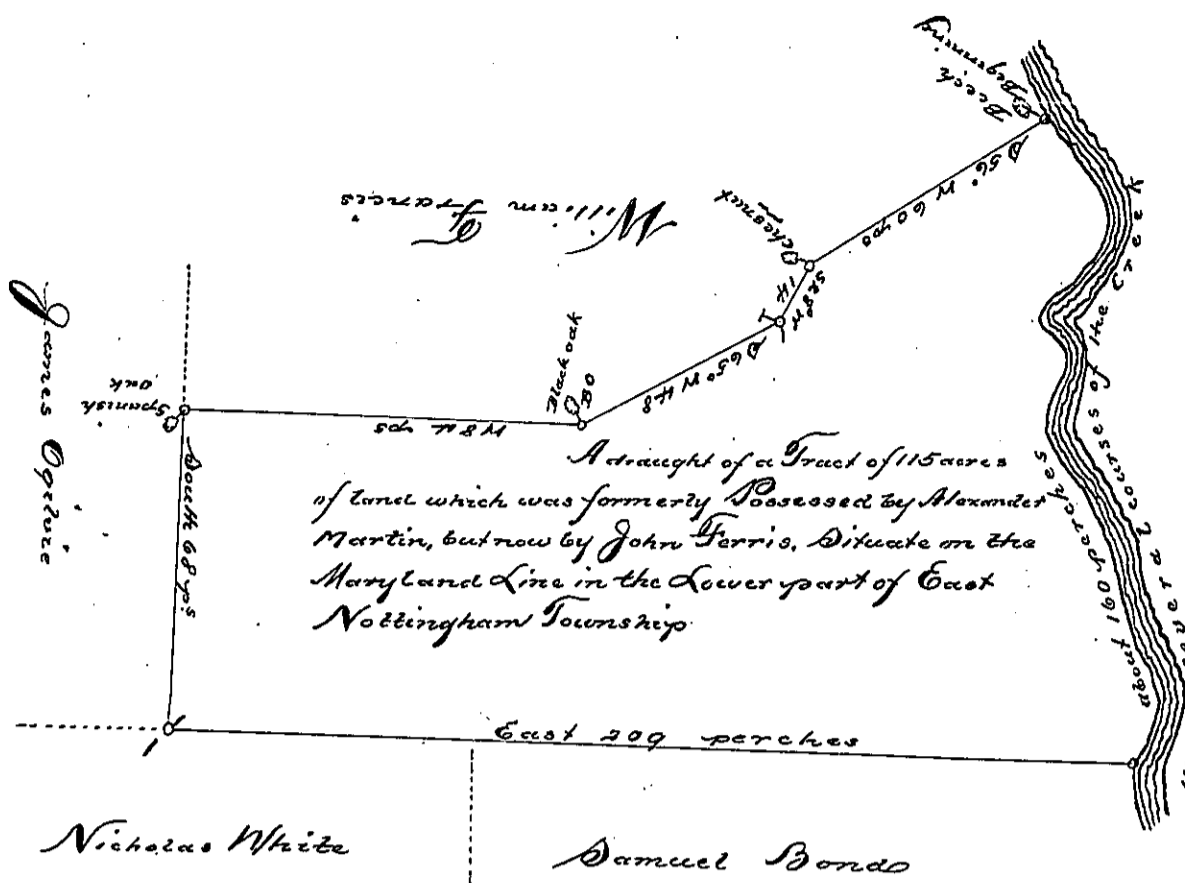 Beginning
Beech
S 56° W 60 ps
William
Francis
Chesnut
S 28° W
14
S 65° W 48
Black oak
BO
W 84 ps
Spanish
oak
James Ogilvie
South 68 ps
A draught of a Tract of 115 acres
of land which was formerly Possessed by Alexander
Martin, but now by John Ferris. Situate on the
Maryland Line in the Lower part of East
Nottingham Township
about 190 perches
courses of the Creek
East 209 perches
Nicholas White
Samuel Bond